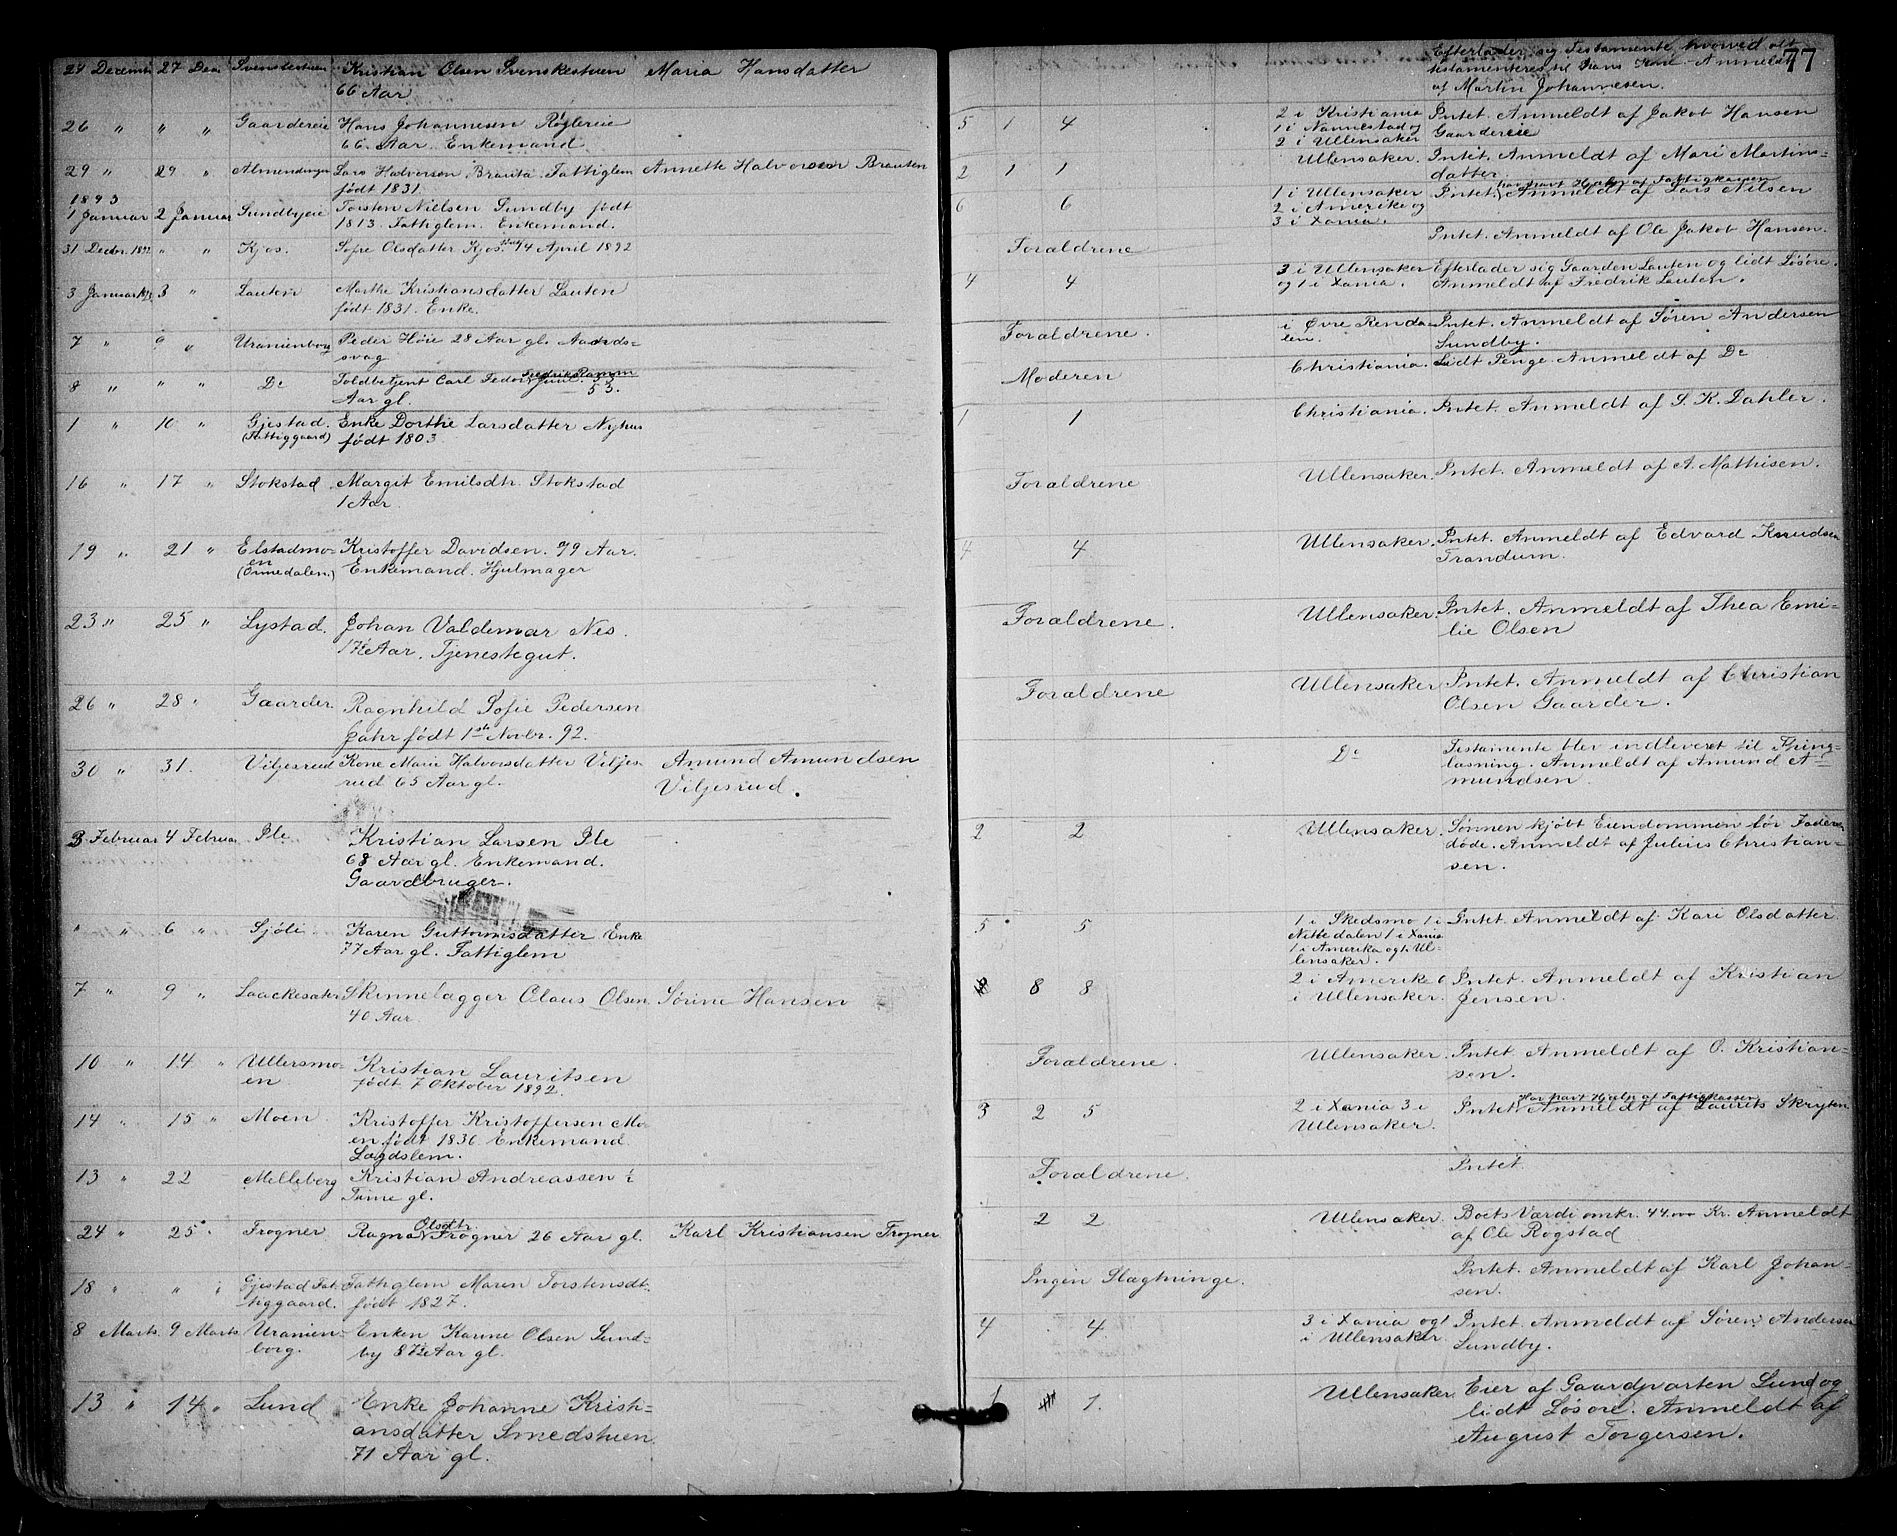 77
24 Decemb. 27 Dec. Svenskestuen Kristian Olsen Svenskestuen Maria Hansdatter
66 Aar
Efterlader sig Testamente hvorved alt
testamenteres til hans Kone. Anmeldt
af Martin Johannesen.
26 " " " Gaardereie Hans Johannesen Røglereie
66 Aar Enkemand
5 1 4 2 i Kristiania
1 i Nannestad og
2 i Ullensaker
Intet. Anmeldt af Jakob Hansen
Gaardereie
29 " 29 " Almendingen Lars Halvorsen Brauta. Fattiglem Annette Halvorsen Brauten
født 1831.
2 1 1 Ullensaker. Intet. Anmeldt af Mari Martins=
datter.
1893
1 Januar 2 Januar Sundbyeie Torsten Nielsen Sundby født
1813. Fattiglem. Enkemand.
6 6 1 i Ullensaker
2 i Amerika og
3 i Xania.
har havt Hjælp af Fattigkassen
Intet. Anmeldt af Lars Nilsen
31 Decbr. 1892 " " Kjos. Sofie Olsdatter Kjos 14 April 1892
Forældrene Intet. Anmeldt af Ole Jakob Hansen.
3 Januar 3 " Lauten Marthe Kristiansdatter Lauten
født 1831. Enke.
4 4 3 i Ullensaker
og 1 i Xania.
Efterlader sig Gaarden Lauten og lidt Løsøre.
Anmeldt af Fredrik Lauten.
7 " 9 " Uranienborg Peder Høie 28 Aar gl. Aands=
svag
Forældrene. i Øvre Renda=
len.
Intet. Anmeldt af Søren Andersen
Sundby.
8 " " " Do Toldbetjent Carl Fedor Fredrik Ramm Juul. 53
53.
Aar gl.
Moderen Christiania. Lidt Penge Anmeldt af Do
1 " 10 " Gjestad. Enke Dorthe Larsdatter Nyhus
(Fattiggaard) født 1803
1 1 Christiania. Intet. Anmeldt af S. K. Dahler.
16 " 17 " Stokstad Margit Emilsdtr. Stokstad
1 Aar.
Forældrene Ullensaker. Intet. Anmeldt af A. Mathisen.
19 " 21 " Elstadmo=
en
(Ormedalen)
Kristoffer Davidsen. 79 Aar.
Enkemand. Hjulmager
4 4 Ullensaker. Intet. Anmeldt af Edvard Knudsen
Trandum.
23 " 25 " Lystad. Johan Valdemar Nes.
17½ Aar. Tjenestegut.
Forældrene. Ullensaker. Intet. Anmeldt af Thea Emi=
lie Olsen
26 " 28 " Gaarder. Ragnhild Sofie Pedersen
født 1ste Novbr. 92.
Forældrene Ullensaker Intet. Anmeldt af Christian
Olsen Gaarder.
30 " 31. Viljesrud Kone Marie Halvorsdatter Viljes= Amund Amundsen
rud 65 Aar gl. Viljesrud.
Do Testamente blev indleveret til Thing=
læsning. Anmeldt af Amund A=
mundsen.
3 Februar 4 Februar Ile Kristian Larsen Ile
68 Aar gl. Enkemand.
Gaardbruger.
2 2 Ullensaker. Sønnen kjøbt Eiendommen før Faderen
døde. Anmeldt af Julius Christian=
sen.
" " 6 " Sjøli Karen Guttormsdatter Enke
77 Aar gl. Fattiglem
5 5 1 i Skedsmo 1 i
Nittedalen 1 i Xania
1 i Amerika og 1 i Ul=
lensaker.
Intet. Anmeldt af Kari Olsdatter
7 " 9 " Laackesater Skinnelægger Claus Olsen Sørine Hansen
40 Aar.
8 8 2 i Amerika 6
i Ullensaker.
Intet. Anmeldt af Kristian
Jensen.
10 " 14 " Ullersmo=
en
Kristian Lauritsen
født 7 Oktober 1892.
Forældrene. Ullensaker. Intet. Anmeldt af O. Kristian=
sen.
14 " 15 " Moen Kristoffer Kristoffersen Mo=
en født 1836. Enkemand
Lægdslem.
3 2 5 2 i Xania 3 i
Ullensaker.
Har havt Hjælp af Fattigkassen
Intet. Anmeldt af Laurits Skryten
13 " 22 Melleberg Kristian Andreassen ½
Time gl.
Forældrene. Intet.
24 " 25 " Frogner Ragna Olsdtr. Frogner 26 Aar gl. Karl Kristiansen Frogner
2 2 Ullensaker. Boets Værdi omkr. 44.000 Kr. Anmeldt
af Ole Rogstad
18 " " " Gjestad Fat=
tiggaard.
Fattiglem Maren Torstensdt.
født 1827.
Ingen Slægtninge. Intet. Anmeldt af Karl Johan=
sen.
8 Marts 9 Marts Uranien=
borg.
Enken Karine Olsen Sund=
by 87½ Aar gl.
4 4. 3 i Xania og 1
i Ullensaker.
Intet. Anmeldt af Søren Andersen
Sundby.
13 " 14 " Lund Enke Johanne Kristi=
ansdatter Smedstuen
71 Aar gl.
1 1. Ullensaker. Eier af Gaardparten Lund og
lidt Løsøre. Anmeldt af
August Torgersen.